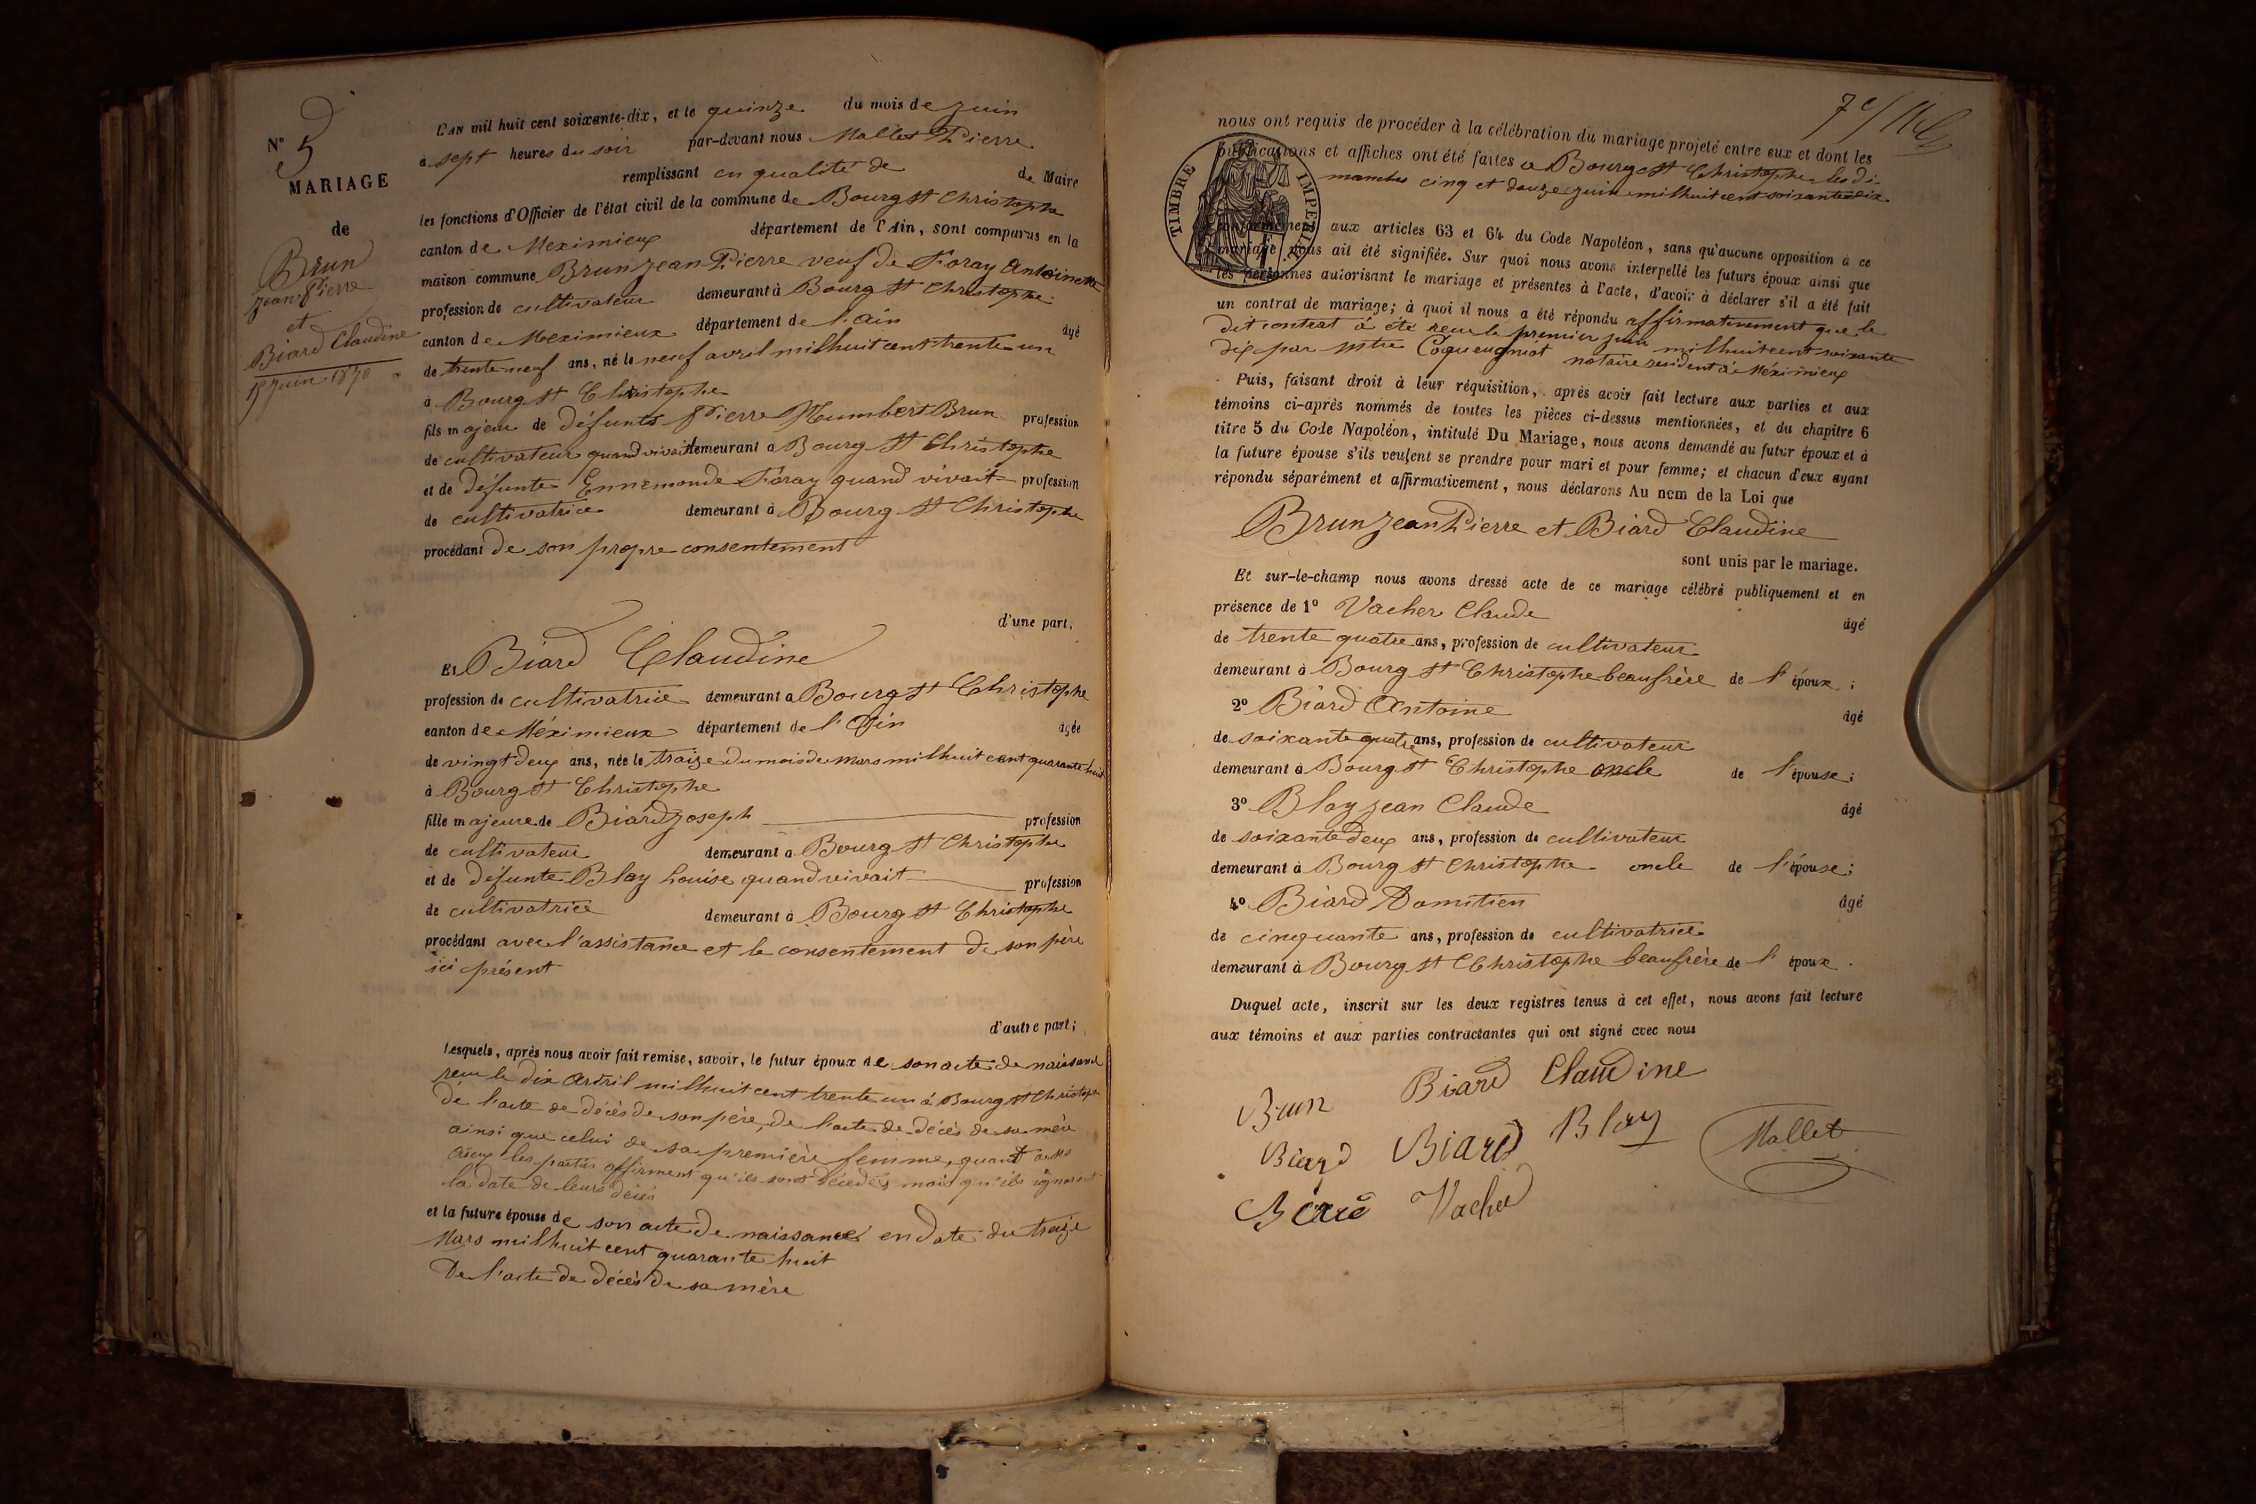 N° 5
MARIAGE
de
Brun
Jean Pierre
et
Biard Claudine
15 Juin 1870
L'AN mil huit cent soixante-dix, et le quinze du mois de Juin
à sept heures du soir par-devant nous Mallet Pierre
remplissant en qualité de de Maire
les fonctions d'Officier de l'état civil de la commune de Bourg St Christophe
canton de Meximieux département de l'Ain, sont comparus en la
maison commune Brun Jean Pierre veuf de Foray Antoinette
profession de cultivateur demeurant à Bourg St Christophe
canton de Meximieux département de l'Ain âgé
de trente neuf ans, né le neuf avril mil huit cent trente un
à Bourg St Christophe
fils majeur de défunts Pierre Humbert Brun profession
de cultivateur quand vivait demeurant à Bourg St Christophe
et de défunte Ennemonde Foray quand vivait profession
de cultivatrice demeurant à Bourg St Christophe
procédant de son propre consentement
d'une part,
Et Biard Claudine
profession de cultivatrice demeurant à Bourg St Christophe
canton de Méximieux département de l'Ain âgée
de vingt deux ans, née le traize du mois de Mars mil huit cent quarante huit
à Bourg St Christophe
fille majeure de Biard Joseph profession
de cultivateur demeurant à Bourg St Christophe
et de defunte Blay Louise quand vivait profession
de cultivatrice demeurant à Bourg St Christophe
procédant avec l'assistance et le consentement de son père
ici présent
d'autre part;
Lesquels, après nous avoir fait remise, savoir, le futur époux de son acte de naissance
reçu le dix Avril mil huit cent trente un à Bourg St Christophe
de l'acte de décès de son père, de l'acte de décès de sa mère
ainsi que celui de sa première femme, quant à ses
aieux les parties affirment qu'ils sont décédés mais qu'ils ignorent
la date de leurs décès
et la future épouse de son acte de naissance en date du traize
Mars mil huit cent quarante huit
De l'acte de décès de sa mère
7e
nous ont requis de procéder à la célébration du mariage projeté entre eux et dont les
publications et affiches ont été faites à Bourg St Christophe les di-
manches cinq et douze juin mil huit cent soixante dix
TIMBRE IMPERIAL
conformément aux articles 63 et 64 du Code Napoléon, sans qu'aucune opposition à ce
mariage nous ait été signifiée. Sur quoi nous avons interpellé les futurs époux ainsi que
les personnes autorisant le mariage et présentes à l'acte, d'avoir à déclarer s'il a été fait
un contrat de mariage; à quoi il nous a été répondu affirmativement que le
dit contrat a été reçu le premier juin mil huit cent soixante
dix par Mtre Coqueugniot notaire resident à Méximieux
Puis, faisant droit à leur réquisition, après avoir fait lecture aux parties et aux
témoins ci-après nommés de toutes les pièces ci-dessus mentionnées, et du chapitre 6
titre 5 du Code Napoléon, intitulé Du Mariage, nous avons demandé au futur époux et à
la future épouse s'ils veulent se prendre pour mari et pour femme; et chacun d'eux ayant
répondu séparément et affirmativement, nous déclarons Au nom de la Loi que
Brun Jean Pierre et Biard Claudine
sont unis par le mariage.
Et sur-le-champ nous avons dressé acte de ce mariage célébré publiquement et en
présence de 1° Vacher Claude âgé
de trente quatre ans, profession de cultivateur
demeurant à Bourg St Christophe beaufrère de l'époux;
2° Biard Antoine âgé
de soixante quatre ans, profession de cultivateur
demeurant à Bourg St Christophe oncle de l'épouse;
3° Blay Jean Claude âgé
de soixante deux ans, profession de cultivateur
demeurant à Bourg St Christophe oncle de l'épouse;
4° Biard Domitien âgé
de cinquante ans, profession de cultivatrice
demeurant à Bourg St Christophe beaufrère de l'époux.
Duquel acte, inscrit sur les deux registres tenus à cet effet, nous avons fait lecture
aux témoins et aux parties contractantes qui ont signé avec nous
Brun Biard Claudine
Biard Biard Blay Mallet
Biard Vacher